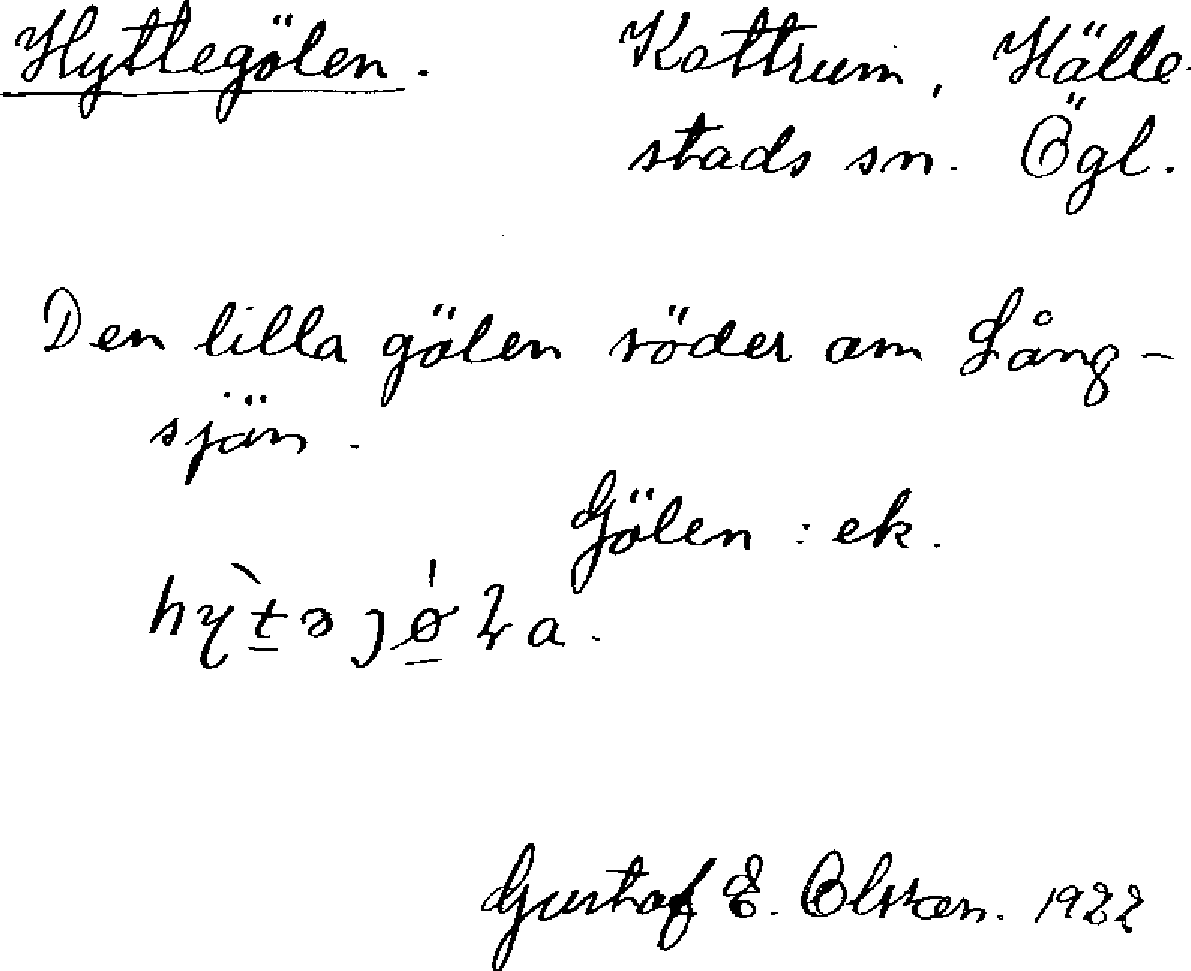 Hyttegölen. Kottrum, Hälle-
stads sn. Ögl.
Den lilla gölen söder om Lång-
sjön.
Gölen : ek.
Gustaf E. Olsson. 1922